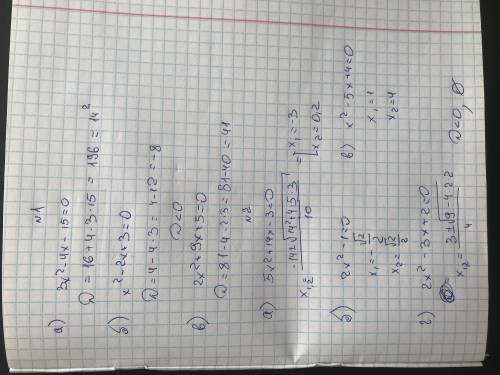 №1
а) 3x²-4x-15=0
D = 16+4·3·15 = 196 = 14²
б) x²-2x+3=0
D = 4-4·3 = 4-12 = -8
D<0
в) 2x²+9x+5=0
D = 81-4·2·3 = 81-40 = 41
№2
а) 5x²+14x-3=0
x₁,₂ = (-14±√(14²+4·5·3))/10 = [x₁=-3
x₂=0,2
б) 2x²-1=0
x₁=-√2/2
x₂=√2/2
в) x²-5x+4=0
x₁=1
x₂=4
г) 2x²-3x+2=0
x₁,₂ = (3±√(9-4·2·2))/4
D<0, ∅